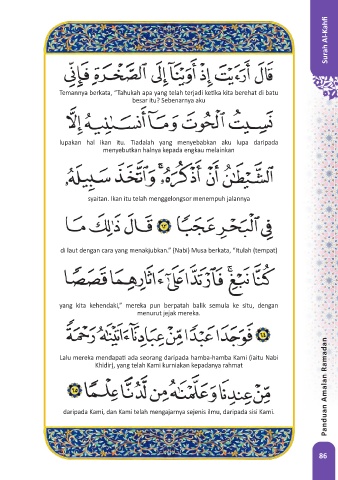 Surah Al-Kahfi
قَالَ أَرَءَيْتَ إِذْ أَوَيْنَآ إِلَى ٱلصَّخْرَةِ فَإِنِّى
Temannya berkata, “Tahukah apa yang telah terjadi ketika kita berehat di batu
besar itu? Sebenarnya aku
نَسِيتُ ٱلْحُوتَ وَمَآ أَنسَىٰنِيهُ إِلَّا
lupakan hal ikan itu. Tiadalah yang menyebabkan aku lupa daripada
menyebutkan halnya kepada engkau melainkan
ٱلشَّيْطَٰنُ أَنْ أَذْكُرَهُۥ ۚ وَٱتَّخَذَ سَبِيلَهُۥ
syaitan. Ikan itu telah menggelongsor menempuh jalannya
فِى ٱلْبَحْرِ عَجَبًا ٦٣ قَالَ ذَٰلِكَ مَا
di laut dengan cara yang menakjubkan.” (Nabi) Musa berkata, “Itulah (tempat)
كُنَّا نَبْغِ ۚ فَٱرْتَدَّا عَلَىٰٓ ءَاثَارِهِمَا قَصَصًا
yang kita kehendaki,” mereka pun berpatah balik semula ke situ, dengan
menurut jejak mereka.
٦٤ فَوَجَدَا عَبْدًا مِّنْ عِبَادِنَآ ءَاتَيْنَٰهُ رَحْمَةً
Lalu mereka mendapati ada seorang daripada hamba-hamba Kami (iaitu Nabi
Khidir), yang telah Kami kurniakan kepadanya rahmat
مِّنْ عِندِنَا وَعَلَّمْنَٰهُ مِن لَّدُنَّا عِلْمًا ٦٥
daripada Kami, dan Kami telah mengajarnya sejenis ilmu, daripada sisi Kami.
Panduan Amalan Ramadan
86